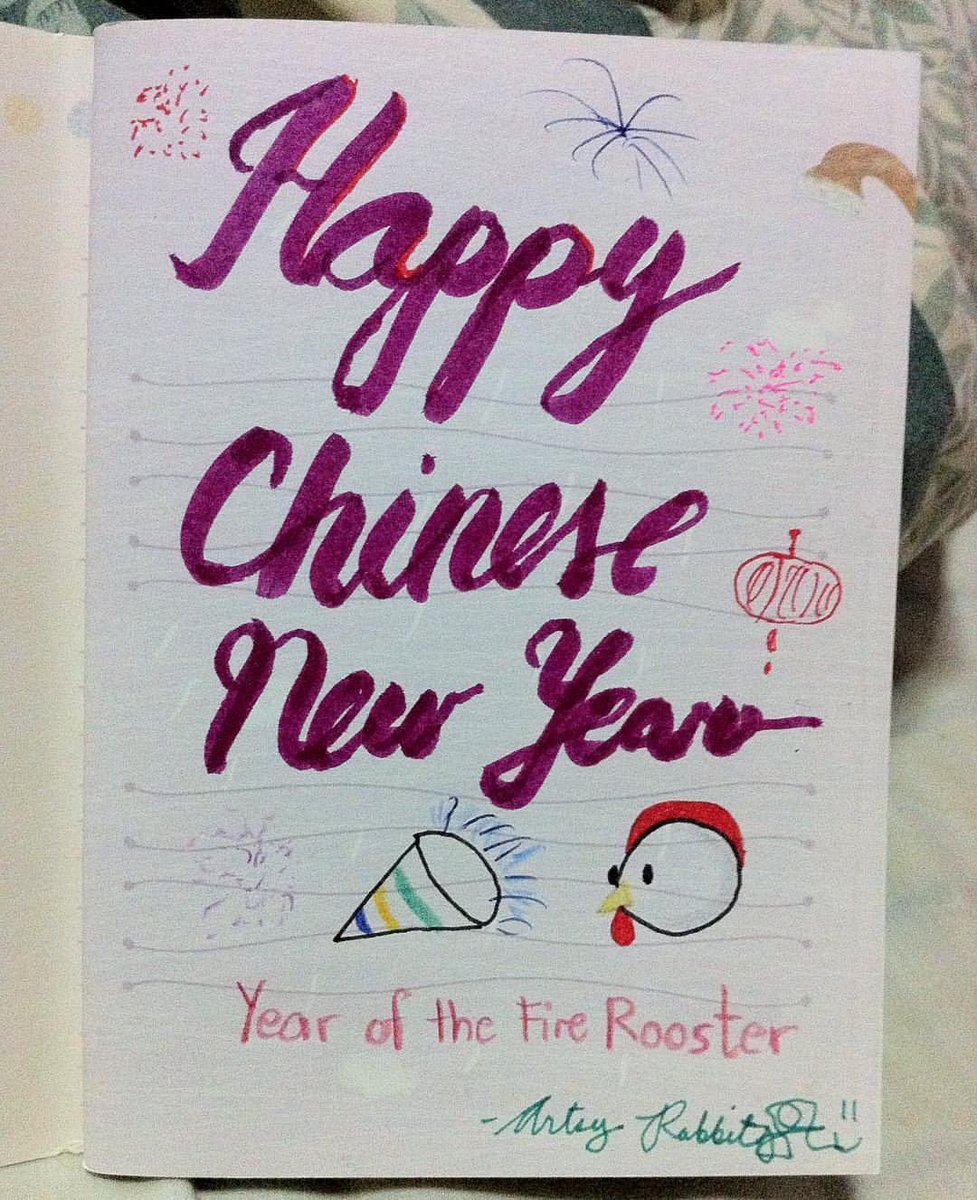 Happy
Chinese
New Year
Year of the Fire Rooster
-Artsy Rabbitz